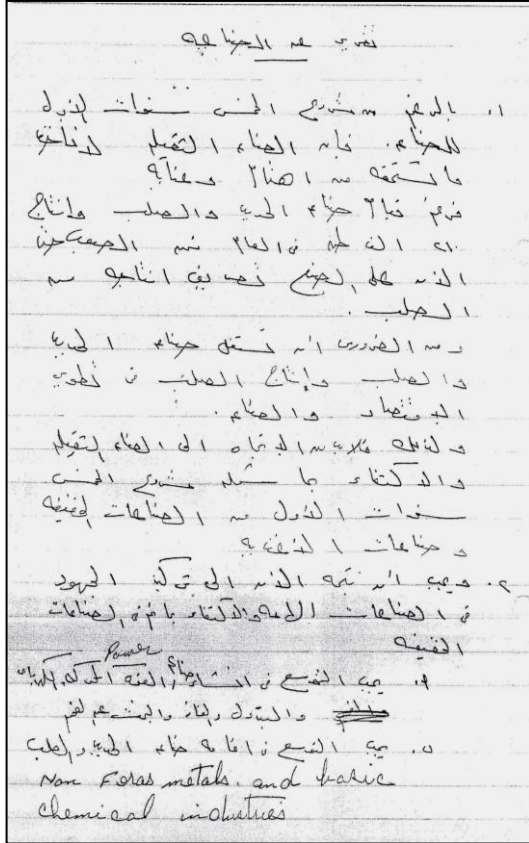 تقرير عن الصناعة
١. بالرغم من مشروع الخمس سنوات الأول
للصناعة. فإن الصناعة الثقيلة لا تأخذ
ما تستحقه من اهتمام وعناية
فرغم قيام صناعة الحديد والصلب وإنتاج
ألف طن في العام فمن الصعب حتى
الآن على المصنع تصريف إنتاجه من
الصلب.
ومن الضروري أن تستغل صناعة الحديد
والصلب وإنتاج الصلب في تطوير
الاقتصاد والصناعة.
ولذلك فلابد من الاتجاه إلى الصناعة الثقيلة
والاكتفاء بما شمله مشروع الخمس
سنوات الأول من الصناعات الخفيفة
وصناعات
٢. ويجب أن نتجه الآن إلى تركيز الجهود
في الصناعات والاكتفاء في الصناعات
الخفيفة
Power
أ. يجب التوسع في إنشاء صناعة المحركة الكهرباء
والبترول والغاز والبحث عن الفحم
ب. يجب التوسع في إقامة صناعة الحديد والصلب
Non Feras metals. and basic
chemical industries